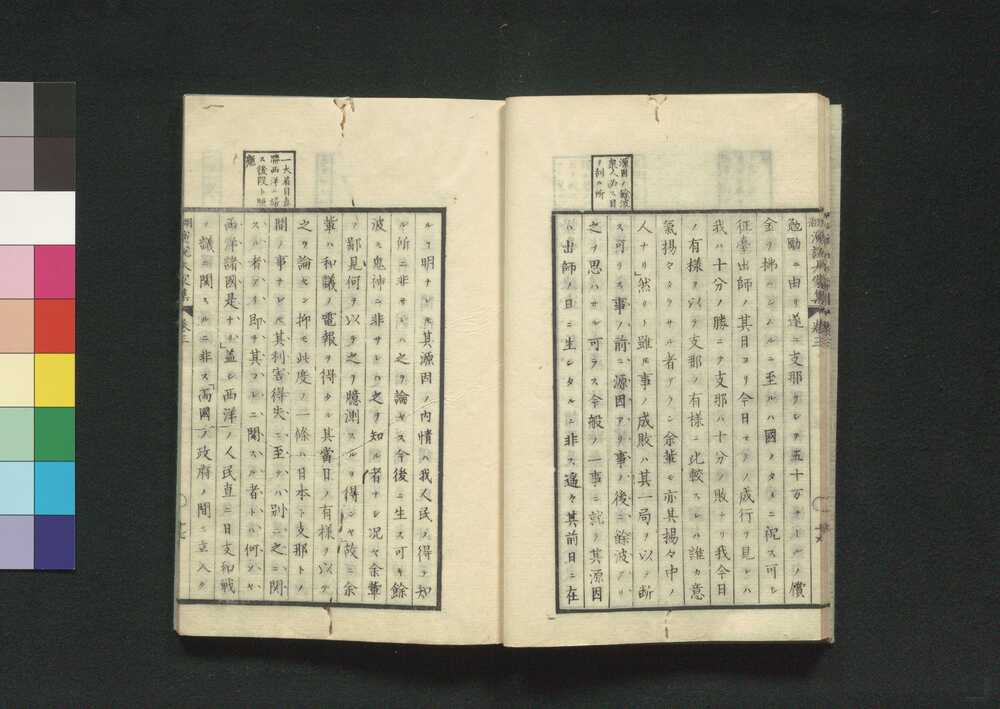 源因ノ餘波
衆人ノ注目
ヲ利スル所
勉勵ニ由リ遂ニ支那クレヲ五十万テールノ償
金ヲ拂ハシムルニ至ルハ國ノタメニ祝ス可シ
征臺出師ノ其日ヨリ今日マテノ成行ヲ見レハ
我ハ十分ノ勝ニテ支那ハ十分ノ敗ナリ我今日
ノ有樣ヲ以テ支那ノ有樣ニ比較スレハ誰カ意
氣揚々タラサル者アラン余輩モ亦其揚々中ノ
人ナリ」然リト雖モ事ノ成敗ハ其一局ヲ以テ斷
ス可ラス事ノ前ニ源因アリ事ノ後ニ餘波アリ
之ヲ思ハサル可ラス今般ノ一事ニ就テ其源因
ハ出師ノ日ニ生シタルニ非ス遙々其前日ニ在
一大着目直
ス後段ト照
ルヿ明ナレ其源因ノ内情ハ我人民ノ得テ知
ル所ニ非サレハ之ヲ論セス今後ニ生ス可キ餘
波モ鬼神ニ非サレハ之ヲ知ル者ナシ況ヤ余輩
ノ鄙見何ヲ以テ之ヲ臆測スルヲ得ンヤ故ニ余
輩ハ和議ノ電報ヲ得タル其當日ノ有樣ヲ以テ
之ヲ論セン抑モ此度ノ一條ハ日本ト支那トノ
間ノ事ナレ𪜈其利害得失ニ至テハ別ニ之ニ關
スル者アリ即チ其コレニ關スル者トハ何ソヤ
西洋諸國是ナリ」蓋シ西洋ノ人民直ニ日支和戰
ノ議ニ關スルニ非ス「両國」ノ政府ノ間ニ立入テ
卷三